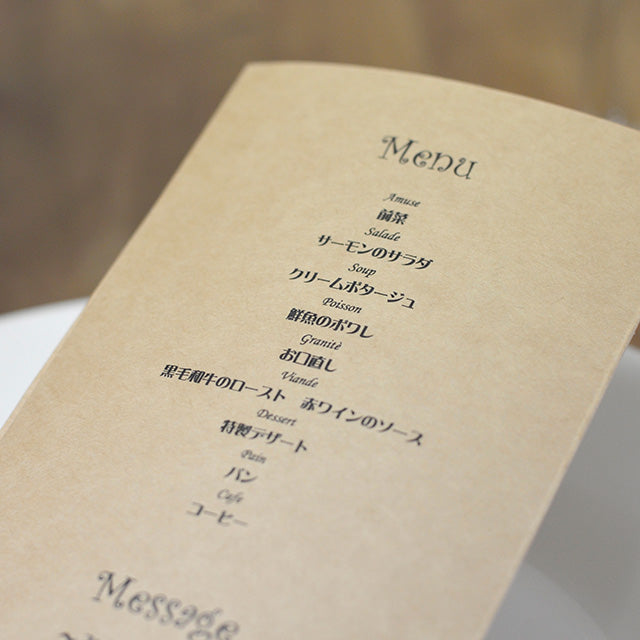 Menu
Amuse
前菜
Salade
サーモンのサラダ
Soup
クリームポタージュ
Poisson
鮮魚のポワレ
Granitè
お口直し
Viande
黒毛和牛のロースト　赤ワインのソース
Dessert
特製デザート
Pain
パン
Cafe
コーヒー
Message